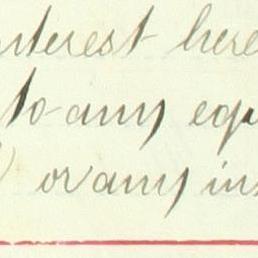 interest here
to any equ
) or any ins